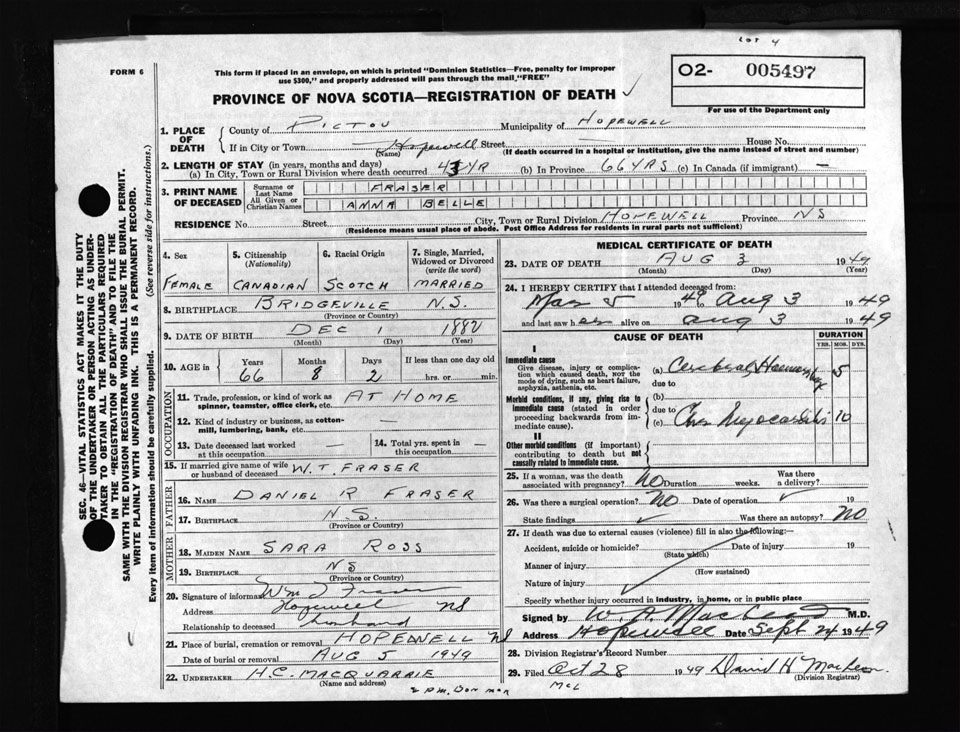 LOT 4
FORM 6
This form if placed in an envelope, on which is printed "Dominion Statistics—Free, penalty for improper
use $300," and properly addressed will pass through the mail "FREE"
O2- 005497
For use of the Department only
PROVINCE OF NOVA SCOTIA—REGISTRATION OF DEATH
1. PLACE OF DEATH
County of PICTOU Municipality of HOPEWELL
If in City or Town Hopewell Street House No.
(Name) (If death occurred in a hospital or institution, give the name instead of street and number)
2. LENGTH OF STAY (in years, months and days)
(a) In City, Town or Rural Division where death occurred 43 YR (b) In Province 66 YRS (c) In Canada (if immigrant) —
3. PRINT NAME OF DECEASED
Surname or Last Name FRASER
All Given or Christian Names ANNA BELLE
RESIDENCE No. Street City, Town or Rural Division HOPEWELL Province NS
(Residence means usual place of abode. Post Office Address for residents in rural parts not sufficient)
4. Sex 5. Citizenship (Nationality) 6. Racial Origin 7. Single, Married, Widowed or Divorced (write the word)
FEMALE CANADIAN SCOTCH MARRIED
8. BIRTHPLACE BRIDGEVILLE N.S.
(Province or Country)
9. DATE OF BIRTH DEC 1 1882
(Month) (Day) (Year)
10. AGE in Years Months Days If less than one day old
66 8 2 hrs. or min.
OCCUPATION
11. Trade, profession, or kind of work as spinner, teamster, office clerk, etc. AT HOME
12. Kind of industry or business, as cotton-mill, lumbering, bank, etc. —
13. Date deceased last worked at this occupation —
14. Total yrs. spent in this occupation —
15. If married give name of wife or husband of deceased W.T. FRASER
FATHER
16. NAME DANIEL R FRASER
17. BIRTHPLACE N.S.
(Province or Country)
MOTHER
18. MAIDEN NAME SARA ROSS
19. BIRTHPLACE NS
(Province or Country)
20. Signature of informant Wm Fraser
Address Hopewell NS
Relationship to deceased husband
21. Place of burial, cremation or removal HOPEWELL NS
Date of burial or removal AUG 5 1949
22. UNDERTAKER H.C. MACQUARRIE
(Name and address)
MEDICAL CERTIFICATE OF DEATH
23. DATE OF DEATH AUG 3 1949
(Month) (Day) (Year)
24. I HEREBY CERTIFY that I attended deceased from:
1949 to Aug 3 1949
and last saw her alive on Aug 3 1949
CAUSE OF DEATH DURATION
YRS. MOS. DYS.
I
Immediate cause
Give disease, injury or complication which caused death, NOT the mode of dying, such as heart failure, asphyxia, asthenia, etc.
(a) Cerebral 5
due to
Morbid conditions, if any, giving rise to immediate cause (stated in order proceeding backwards from immediate cause).
(b)
due to
(c) Myocarditis 10
II
Other morbid conditions (if important) contributing to death but not causally related to immediate cause.
25. If a woman, was the death associated with pregnancy? NO Duration weeks. Was there a delivery?
26. Was there a surgical operation? NO Date of operation 19
State findings Was there an autopsy? NO
27. If death was due to external causes (violence) fill in also the following:-
Accident, suicide or homicide? Date of injury 19
(State which)
Manner of injury
(How sustained)
Nature of injury
Specify whether injury occurred in industry, in home, or in public place
Signed by M.D.
Address Hopewell Date Sept 24 1949
28. Division Registrar's Record Number
29. Filed Oct 28 1949 David H
(Division Registrar)
SEC. 46—VITAL STATISTICS ACT MAKES IT THE DUTY
OF THE UNDERTAKER OR PERSON ACTING AS UNDER-
TAKER TO OBTAIN ALL THE PARTICULARS REQUIRED
IN THE "REGISTRATION OF DEATH" AND TO FILE THE
SAME WITH THE DIVISION REGISTRAR WHO SHALL ISSUE THE BURIAL PERMIT.
WRITE PLAINLY WITH UNFADING INK. THIS IS A PERMANENT RECORD.
Every item of information should be carefully supplied. (See reverse side for instructions.)